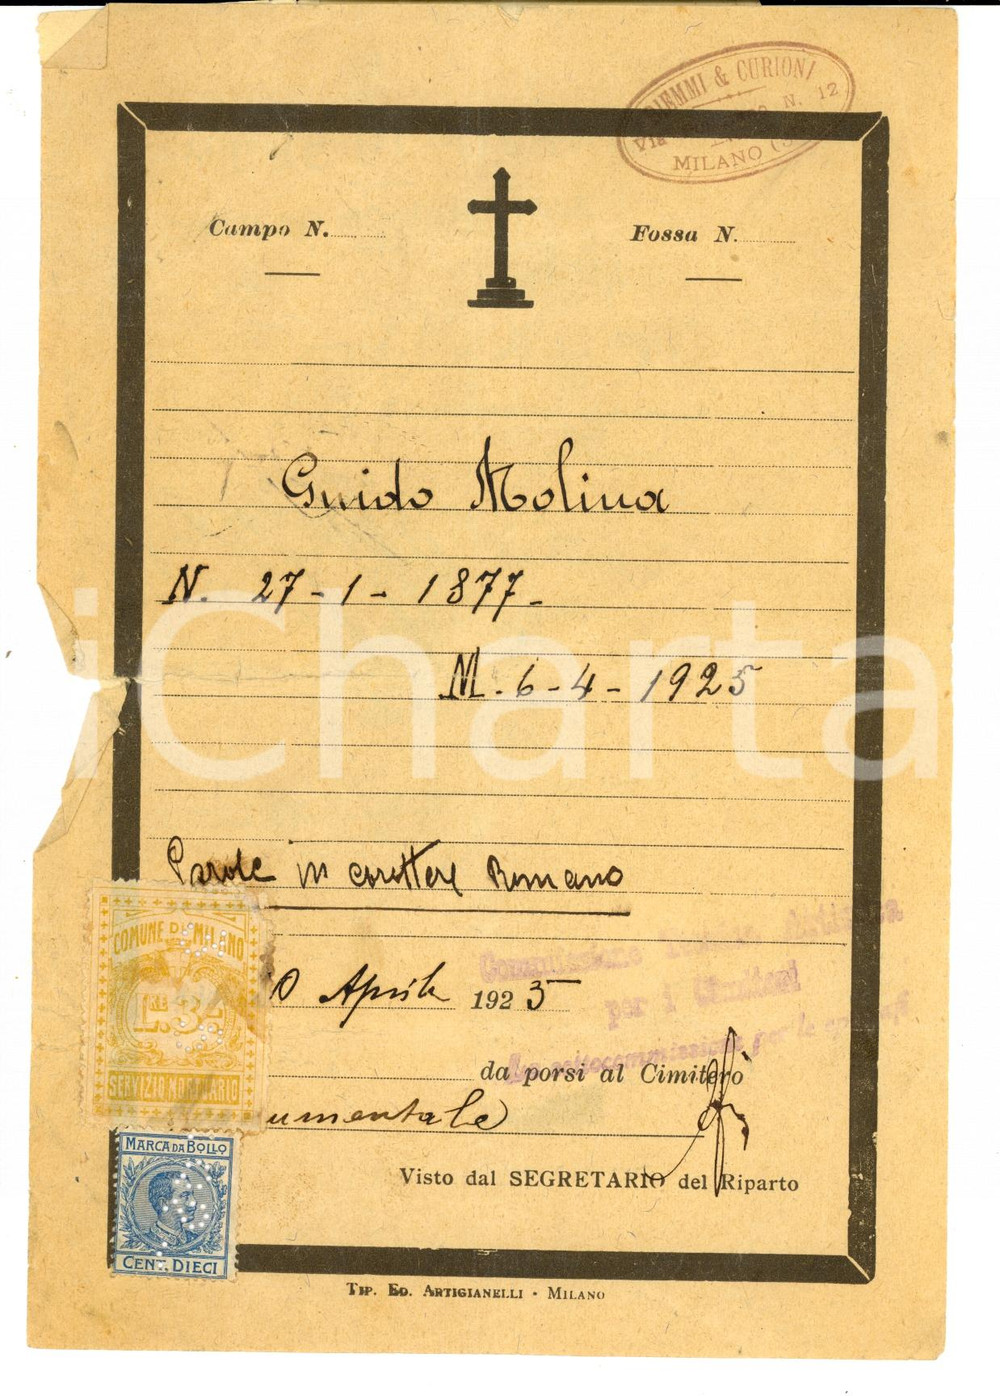 & CURIONI
N. 12
MILANO
Campo N.
Fossa N.
Guido Molina
N. 27-1-1877-
M. 6-4-1925
iCharta
Parole in carattere Romano
COMUNE DI MILANO
LRE 3
SERVIZIO NORDINARIO
Aprile 1925
Commissione
per i Cimiteri
La sottocommissione per le
da porsi al Cimitero
umentale
Visto dal SEGRETARIO del Riparto
MARCA DA BOLLO
CENT. DIECI
TIP. ED. ARTIGIANELLI - MILANO